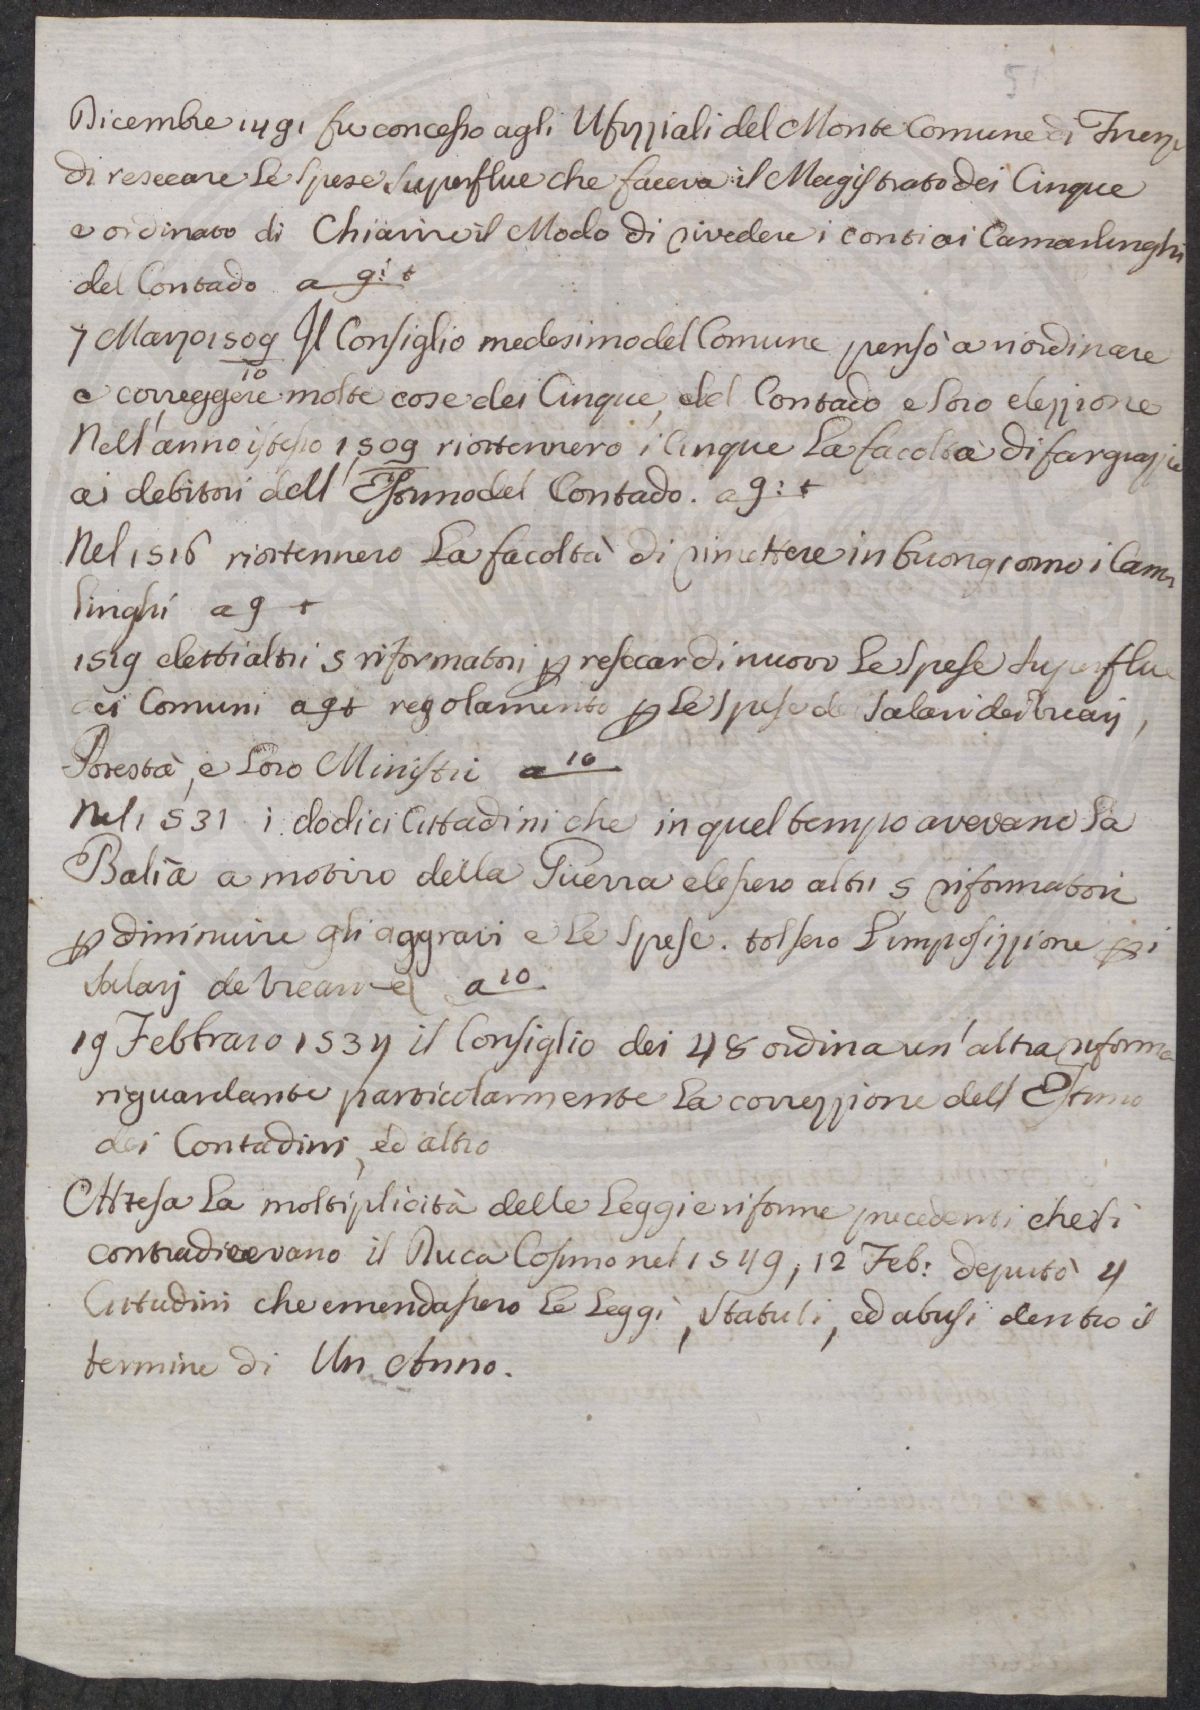 51
Dicembre 1491 fu concesso agli Ufizziali del Monte Comune di Firenze
di resecare le spese superflue che faceva il Magistrato dei Cinque
e ordinato di Chiarire il Modo di rivedere i conti ai Camarlinghi
del Contado a 9: t
7 Marzo 1509 Il Consiglio medesimo del Comune pensò a riordinare
10
e correggere molte cose dei Cinque, del Contado e loro elezzione
Nell'anno istesso 1509 riottennero i Cinque la facoltà di far grazzie
ai debitori dell'Estimo del Contado. a 9: t
Nel 1516 riottennero la facoltà di rimettere in buongiorno i Camar
linghi a 9 t
1519 eletti altri 5 riformatori p resecar di nuovo le spese superflue
dei Comuni a 9 t regolamento p le spese de Salari dei Vicarj,
Potestà, e loro Ministri a 10
Nel 1531 i dodici Cittadini che in quel tempo avevano la
Balìa a motivo della Guerra elessero altri 5 riformatori
p diminuire gli aggravi e le spese. tolsero l'imposizzione p i
salarj de Vicari e a 10
19 Febbraro 1534 il Consiglio dei 48 ordina un'altra riforma
riguardante particolarmente la correzzione dell'Estimo
dei Contadini, ed altro
Attesa la moltiplicità delle Leggi e riforme precedenti che si
contradicevano il Duca Cosimo nel 1549, 12 Feb: deputò 4
Cittadini che emendassero le Leggi, Statuti, ed abusi dentro il
termine di Un Anno.